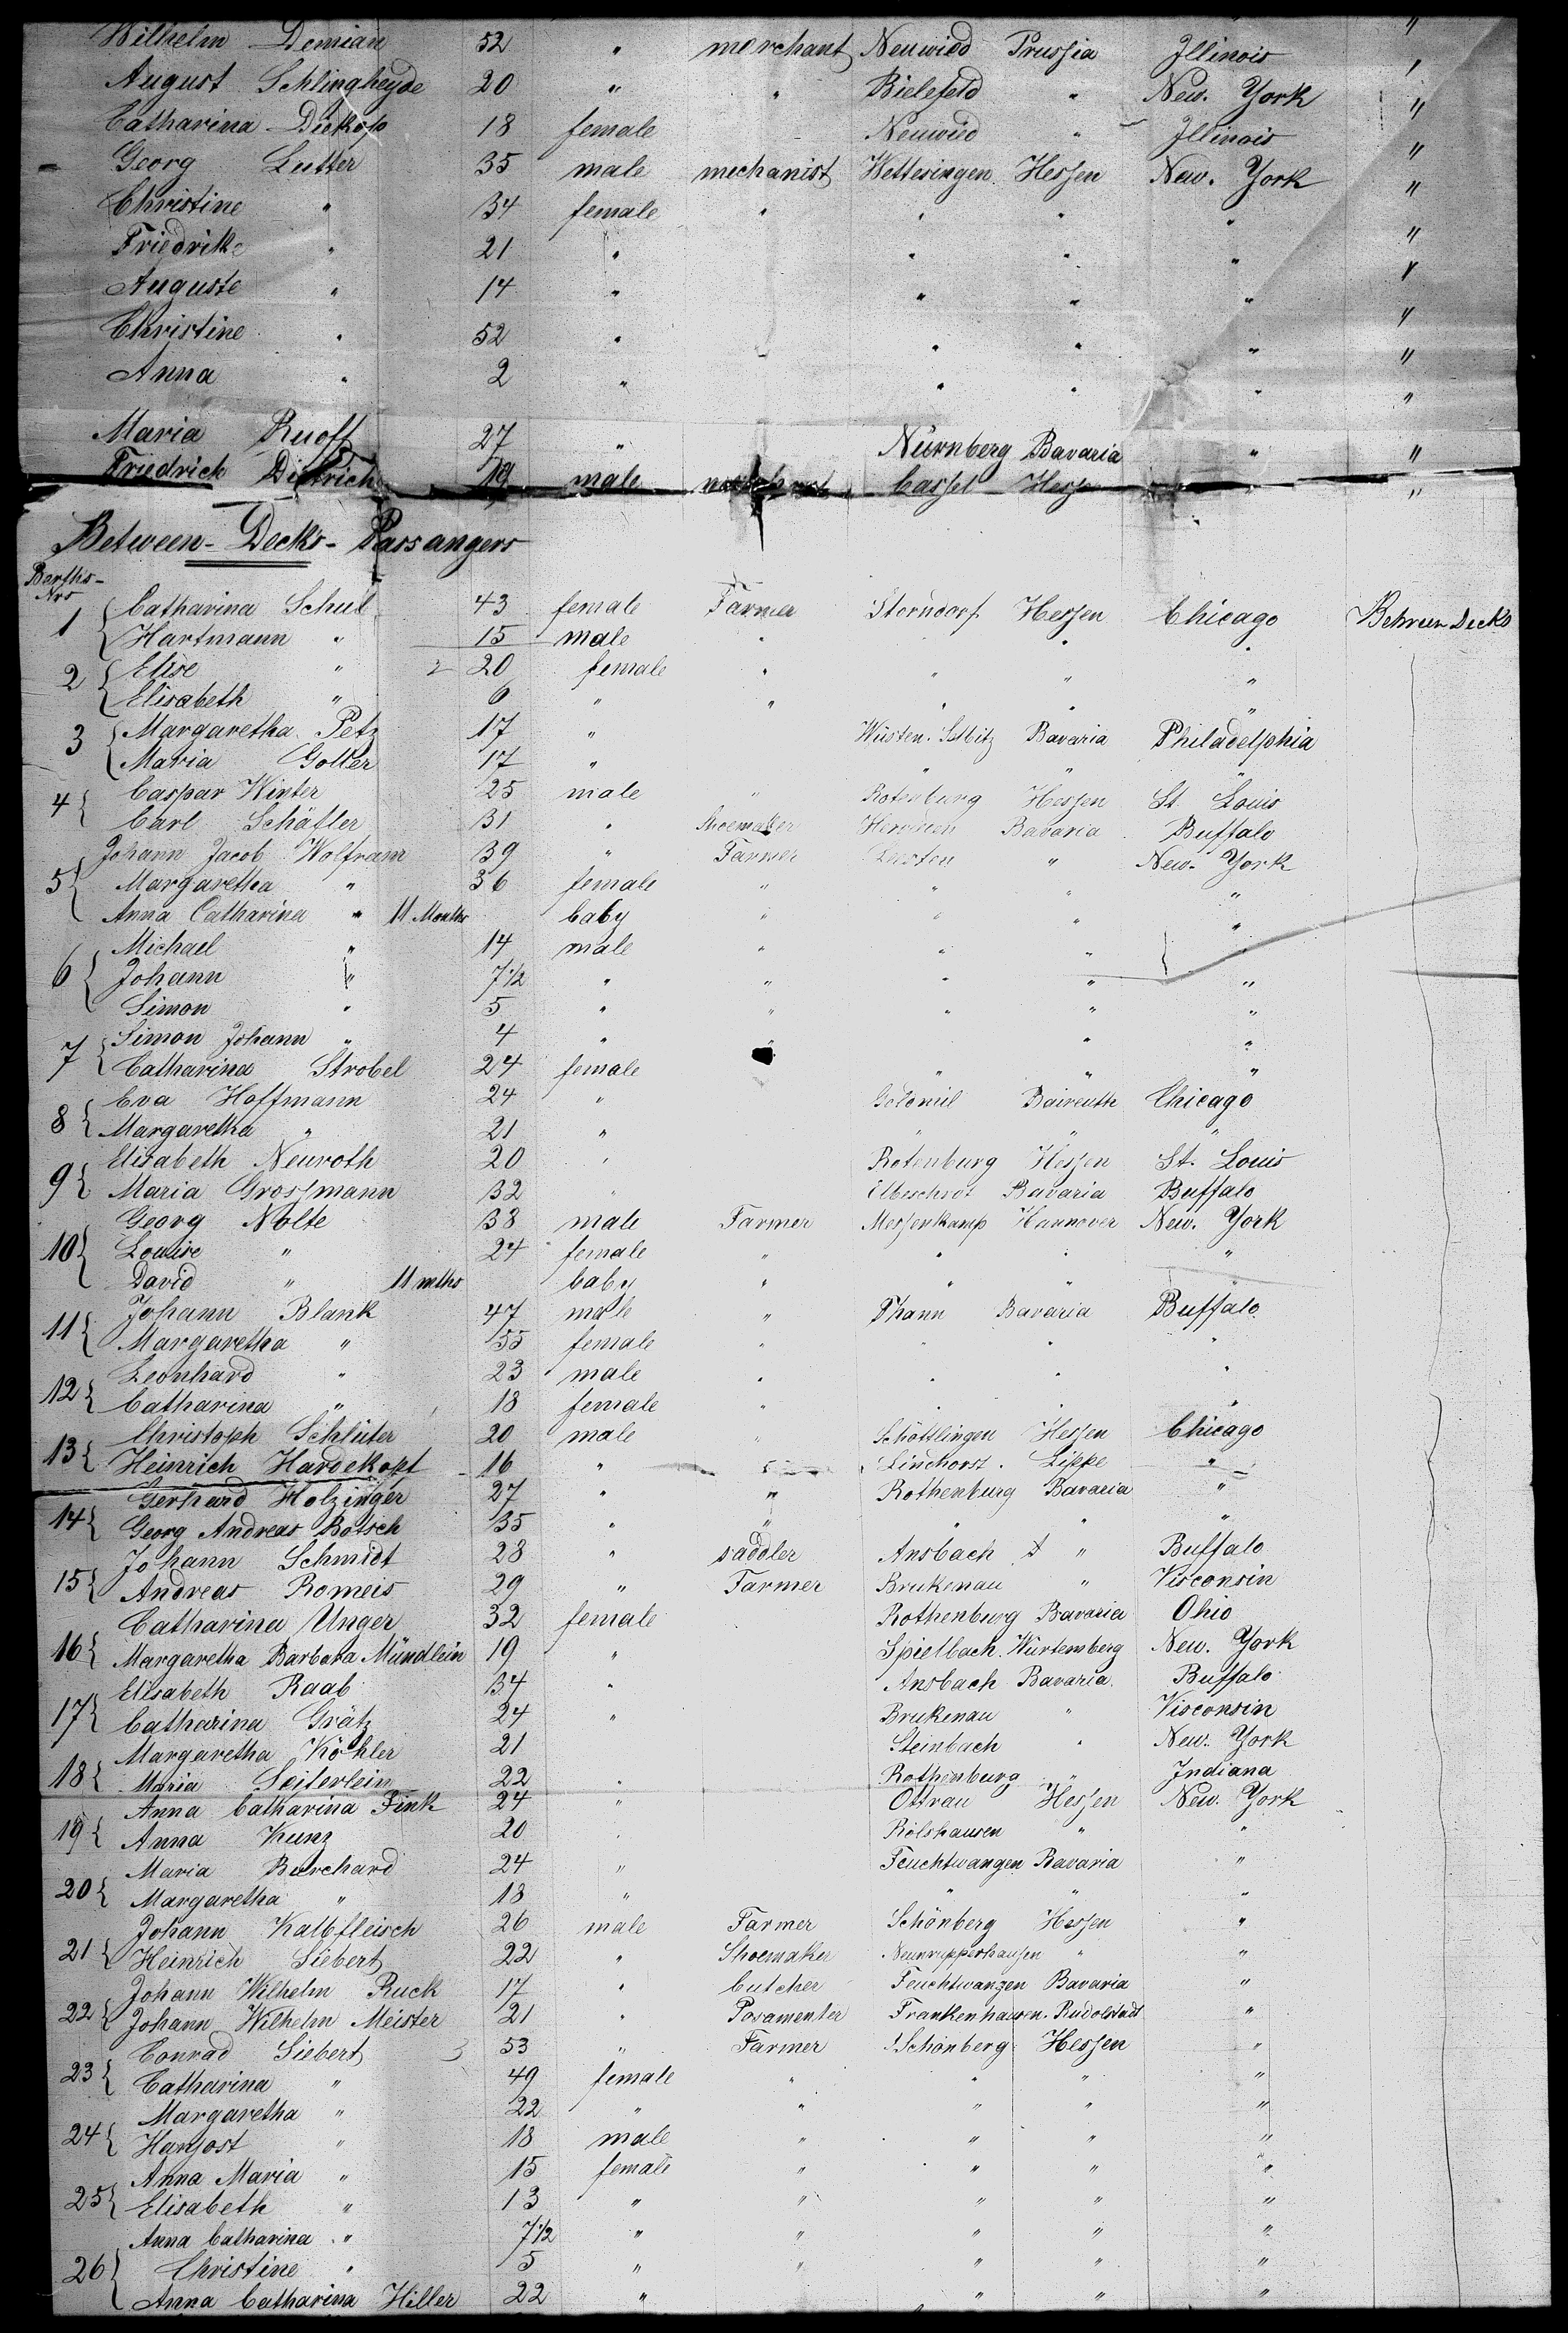 Wilhelm Demian 52 " merchant Neuwied Prussia Illinois "
August Schlingheyde 20 " " Bielefeld " New. York "
Catharina Diekop 18 female Neuwied " Illinois "
Georg Lutter 35 male mechanist Wettesingen Hessen New. York "
Christine " 34 female " " " " "
Friedrike " 21 " " " " "
Auguste " 14 " " " " "
Christine " 52 " " " " "
Anna " 2 " " " " "
Maria Ruoff 27 " Nürnberg Bavaria " "
Friedrich Dittrich 19 male Cassel Hess "
Between-Decks-Passangers
Berths-Nrs
1 { Catharina Schul 43 female Farmer Storndorf Hessen Chicago Between Decks
Hartmann " 15 male " " "
2 { Elise " 20 female " " " "
Elisabeth " 6 " " " " "
3 { Margaretha Petz 17 " Wüsten. Selbitz Bavaria Philadelphia
Maria Goller 17 " " " "
4 { Caspar Winter 25 male " Rotenburg Hessen St. Louis
Carl Schäfler 31 " Shoemaker Bavaria Buffalo
Johann Jacob Wolfram 39 " Farmer " New. York
5 { Margaretha " 36 female " " " "
Anna Catharina " 11 Months baby " " " "
Michael " 14 male " " "
6 { Johann " 7 1/2 " " " " "
Simon " 5 " " " " "
7 { Simon Johann " 4 " " " "
Catharina Strobel 24 female " " "
Eva Hoffmann 24 " Baireuth Chicago
8 { Margaretha " 21 " " " "
Elisabeth Neuroth 20 " Rotenburg Hessen St. Louis
9 { Maria Grossmann 32 " Bavaria Buffalo
Georg Nolte 38 male Farmer Messenkamp Hannover New. York
10 { Louise " 24 female " " " "
David " 11 mths baby " " "
Johann Blank 47 male " Thann Bavaria Buffalo
11 { Margaretha " 55 female " " " "
Leonhard " 23 male " " " "
12 { Catharina " 18 female " " " "
Christoph Schlüter 20 male " Schöttlingen Hessen Chicago
13 { Heinrich Hardekopf 16 " Lindhorst. Lippe "
Gerhard Holzinger 27 " " Rothenburg Bavaria "
14 { Georg Andreas Botsch 35 " " " " "
Johann Schmidt 28 " saddler Ansbach " Buffalo
15 { Andreas Romeis 29 " Farmer Brukenau " Visconsin
Catharina Unger 32 female Rothenburg Bavaria Ohio
16 { Margaretha Barbara Mündlein 19 " Spielbach. Würtemberg New. York
Elisabeth Raab 34 " Ansbach Bavaria. Buffalo
17 { Catharina Grätz 24 " Brukenau " Visconsin
Margaretha Köhler 21 Steinbach " New. York
18 { Maria Seiferlein 22 " Rothenburg " Indiana
Anna Catharina Fink 24 " Ottrau Hessen New. York
19 { Anna Kunz 20 " Rölshausen " "
Maria Burchard 24 " Feuchtwangen Bavaria "
20 { Margaretha " 18 " " " "
Johann Kalbfleisch 26 male Farmer Schönberg Hessen "
21 { Heinrich Siebert 22 " Shoemaker " "
Johann Wilhelm Ruck 17 " butcher Feuchtwangen Bavaria "
22 { Johann Wilhelm Meister 21 " Posamenter Frankenhausen. Rudolstadt "
Conrad Siebert 53 " Farmer Schönberg Hessen "
23 { Catharina " 49 female " " " "
Margaretha " 22 " " " " "
24 { Hanjost " 18 male " " " "
Anna Maria " 15 female " " " "
25 { Elisabeth " 13 " " " " "
Anna Catharina " 7 1/2 " " " " "
26 { Christine " 5 " " " " "
Anna Catharina Hiller 22 " " " "